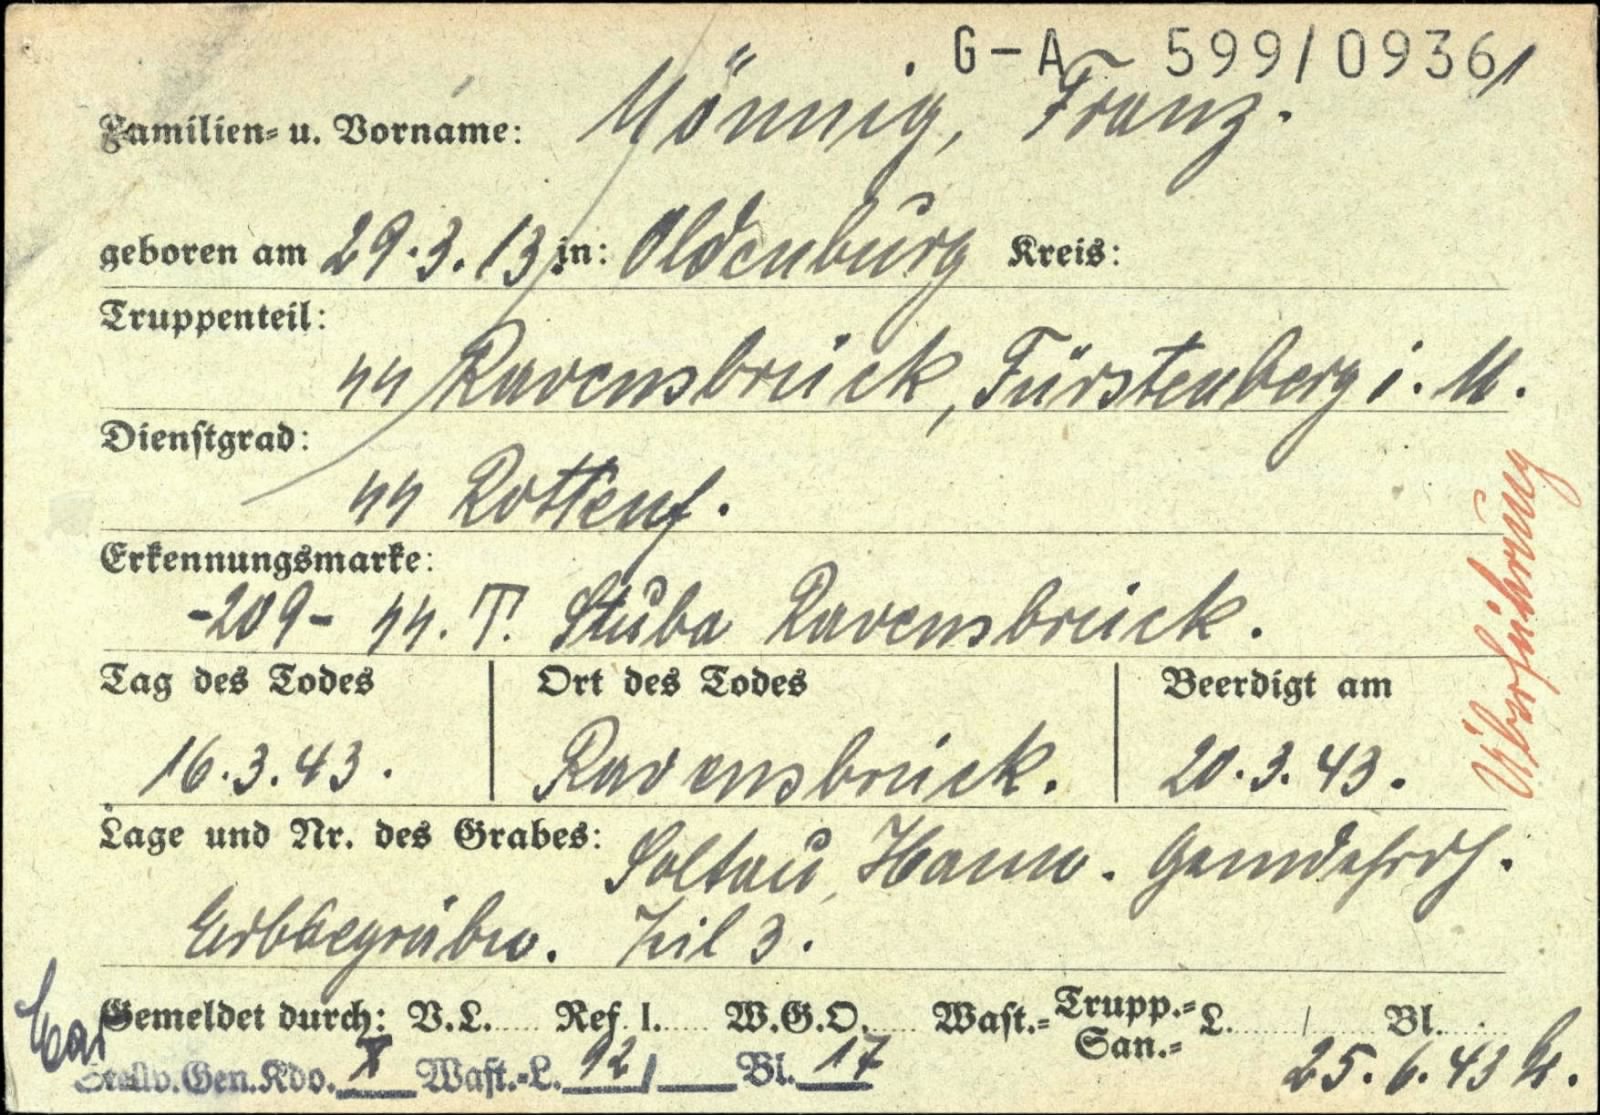 G-A 599/0936
Familien- u. Vorname: Mönnig, Franz.
geboren am 29.3.13 in: Oldenburg Kreis:
Truppenteil:
SS Ravensbrück, Fürstenberg i. M.
Dienstgrad:
SS Rottenf.
Erkennungsmarke:
-209- SS. T. Stuba Ravensbrück.
Tag des Todes Ort des Todes Beerdigt am
16.3.43. Ravensbrück. 20.3.43.
Überführung
Lage und Nr. des Grabes: Soltau, Hann.
Erbbegräbn. Teil 3.
Gemeldet durch: V.L. Ref. I. W.G.O. Wast.- Trupp.- San.- L. / Bl.
Stellv. Gen. Kdo. X Wast.-L. 92/ Bl. 17 25.6.43